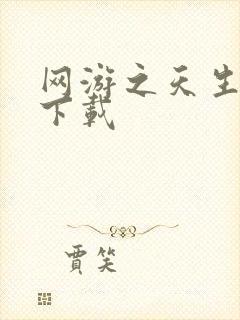 网游之天生
下載
賈笑